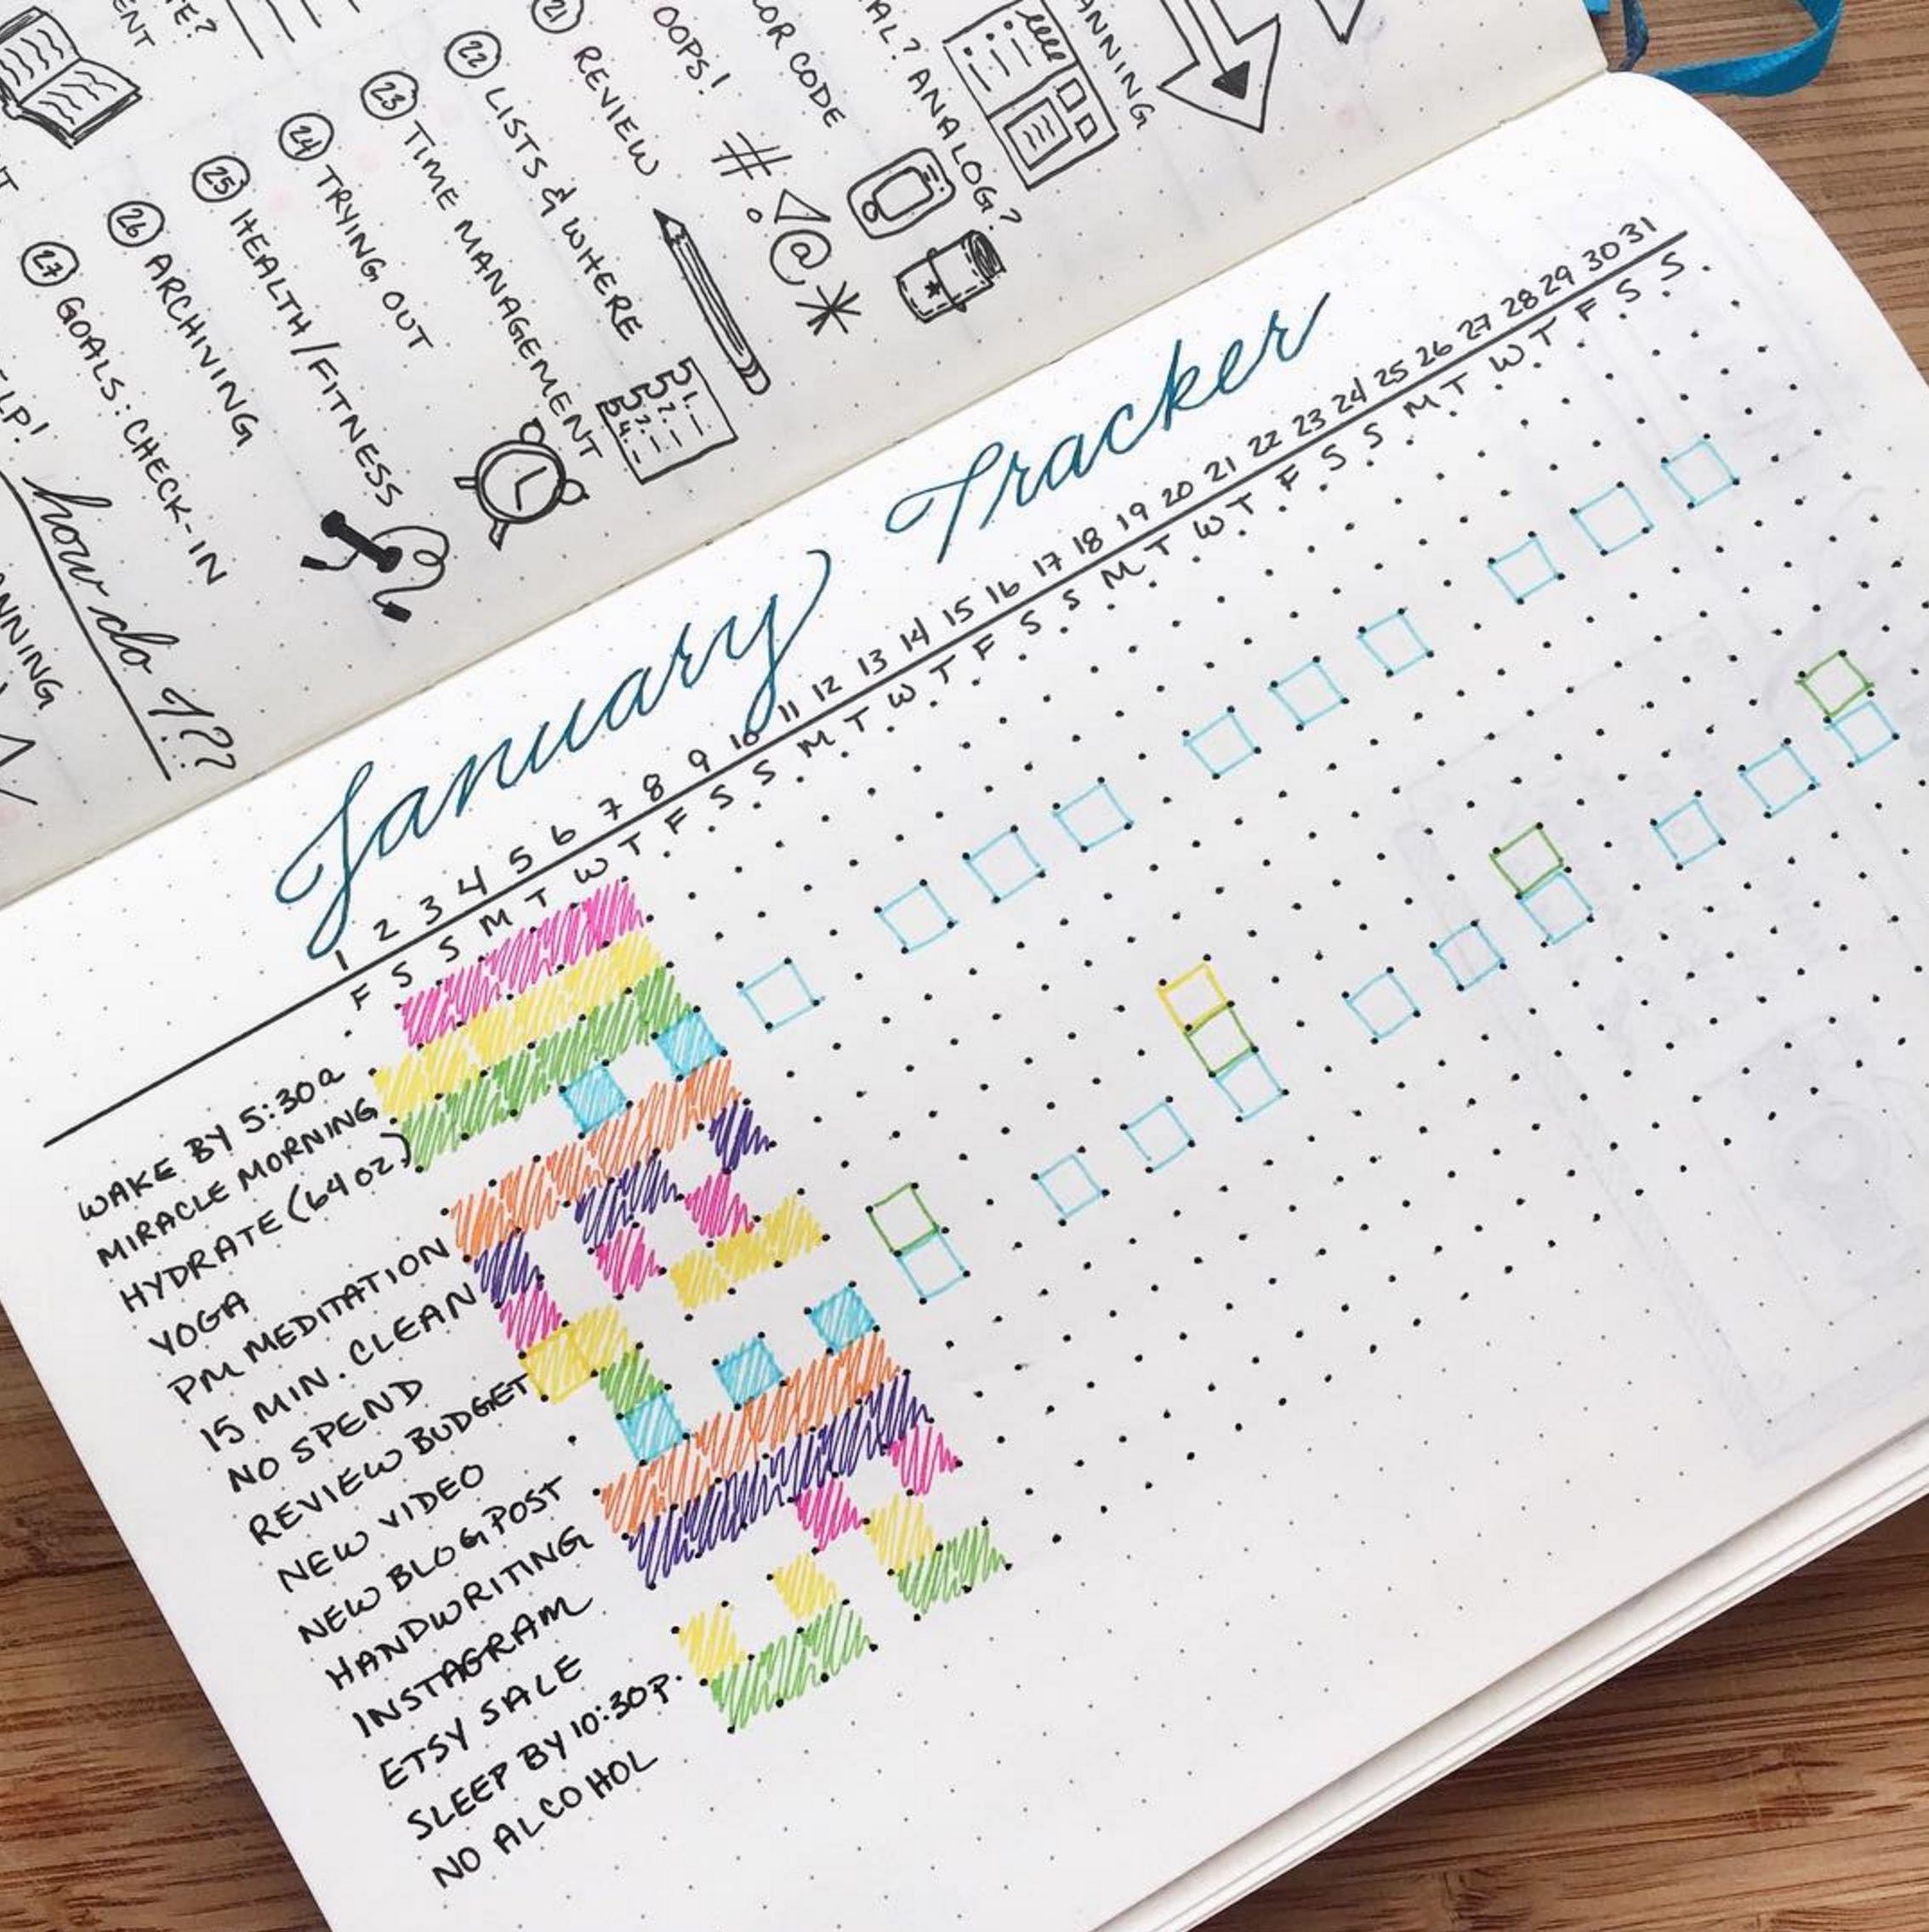 21 REVIEW
OOPS!
OR CODE
AL? ANALOG?
ANNING
22 LISTS & WHERE
23 TIME MANAGEMENT
24 TRYING OUT
25 HEALTH/FITNESS
26 ARCHIVING
27 GOALS: CHECK-IN
ELP!
how do I??
NNING
# @ *
January Tracker
1 2 3 4 5 6 7 8 9 10 11 12 13 14 15 16 17 18 19 20 21 22 23 24 25 26 27 28 29 30 31
F S S M T W T F S S M T W T F S S M T W T F S S M T W T F S S
WAKE BY 5:30a
MIRACLE MORNING
HYDRATE (64 oz)
YOGA
PM MEDITATION
15 MIN. CLEAN
NO SPEND
REVIEW BUDGET
NEW VIDEO
NEW BLOG POST
HANDWRITING
INSTAGRAM
ETSY SALE
SLEEP BY 10:30P.
NO ALCOHOL